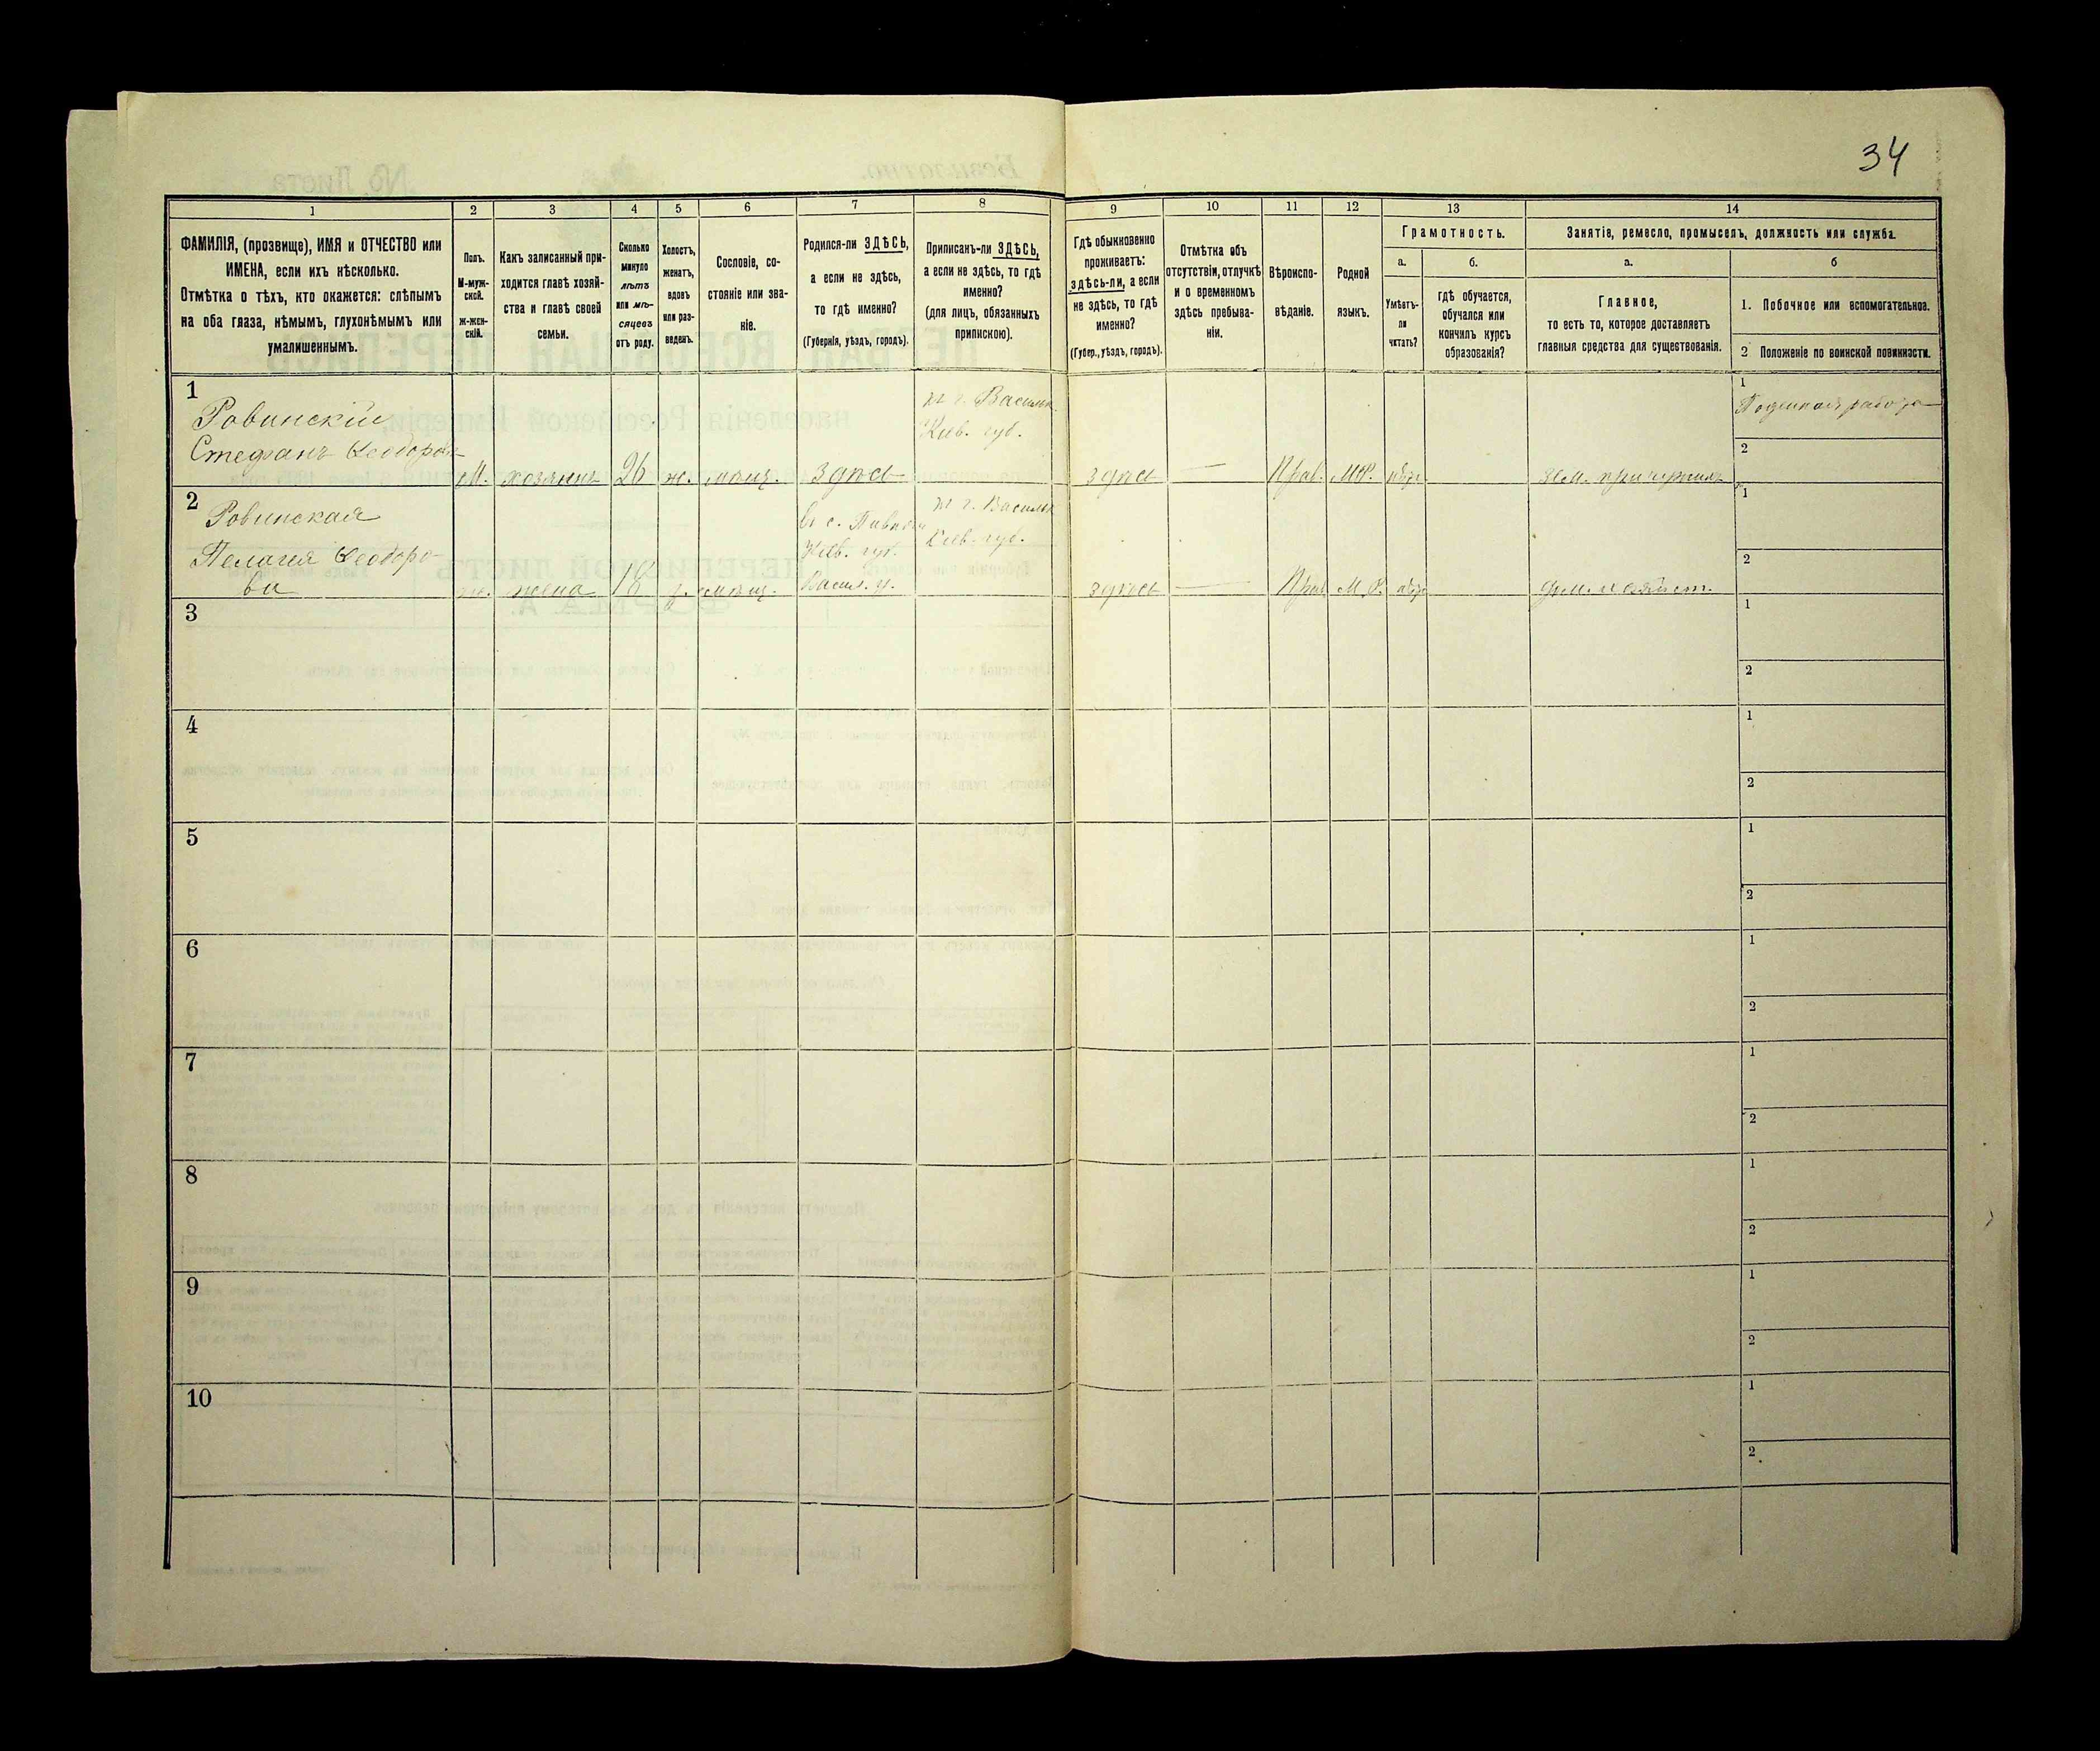 34
1
2
3
4
5
6
7
8
9
10
11
12
13
14
ФАМИЛІЯ, (прозвище), ИМЯ и ОТЧЕСТВО или
ИМЕНА, если ихъ нѣсколько.
Отмѣтка о тѣхъ, кто окажется: слѣпымъ
на оба глаза, нѣмымъ, глухонѣмымъ или
умалишеннымъ.
Полъ.
М-муж-
ской.
ж-жен-
скій.
Какъ записанный при-
ходится главѣ хозяй-
ства и главѣ своей
семьи.
Сколько
минуло
лѣтъ
или мѣ-
сяцевъ
отъ роду.
Холостъ,
женатъ,
вдовъ
или раз-
веденъ.
Сословіе, со-
стояніе или зва-
ніе.
Родился-ли ЗДѢСЬ,
а если не здѣсь,
то гдѣ именно?
(Губернія, уѣздъ, городъ).
Приписанъ-ли ЗДѢСЬ,
а если не здѣсь, то гдѣ
именно?
(для лицъ, обязанныхъ
припискою).
Гдѣ обыкновенно
проживаетъ:
здѣсь-ли, а если
не здѣсь, то гдѣ
именно?
(Губер., уѣздъ, городъ).
Отмѣтка объ
отсутствіи, отлучкѣ
и о временномъ
здѣсь пребыва-
ніи.
Вѣроиспо-
вѣданіе.
Родной
языкъ.
Грамотность.
а.
Умѣетъ-
ли
читать?
б.
гдѣ обучается,
обучался или
кончилъ курсъ
образованія?
Занятіе, ремесло, промыселъ, должность или служба.
а.
Главное,
то есть то, которое доставляетъ
главныя средства для существованія.
б
1. Побочное или вспомогательное.
2 Положеніе по воинской повинности.
1
Ровинскій
Стефанъ Ѳеодоров
М.
хозяинъ
26
ж.
мѣщ.
здѣсь
г. Васильк.
Кіев. губ.
здѣсь
—
Прав.
М.Р.
нѣтъ
1
Поденная работа
2
2
Ровинская
Пелагея Ѳеодоро-
ва
ж.
жена
18
з.
мѣщ.
Въ с.
Кіев. губ.
Васил. у.
г. Васильк
Кіев. губ.
здѣсь
—
Прав
М.Р.
нѣтъ
дом. хозяйст.
1
2
3
1
2
4
1
2
5
1
2
6
1
2
7
1
2
8
1
2
9
1
2
10
1
2